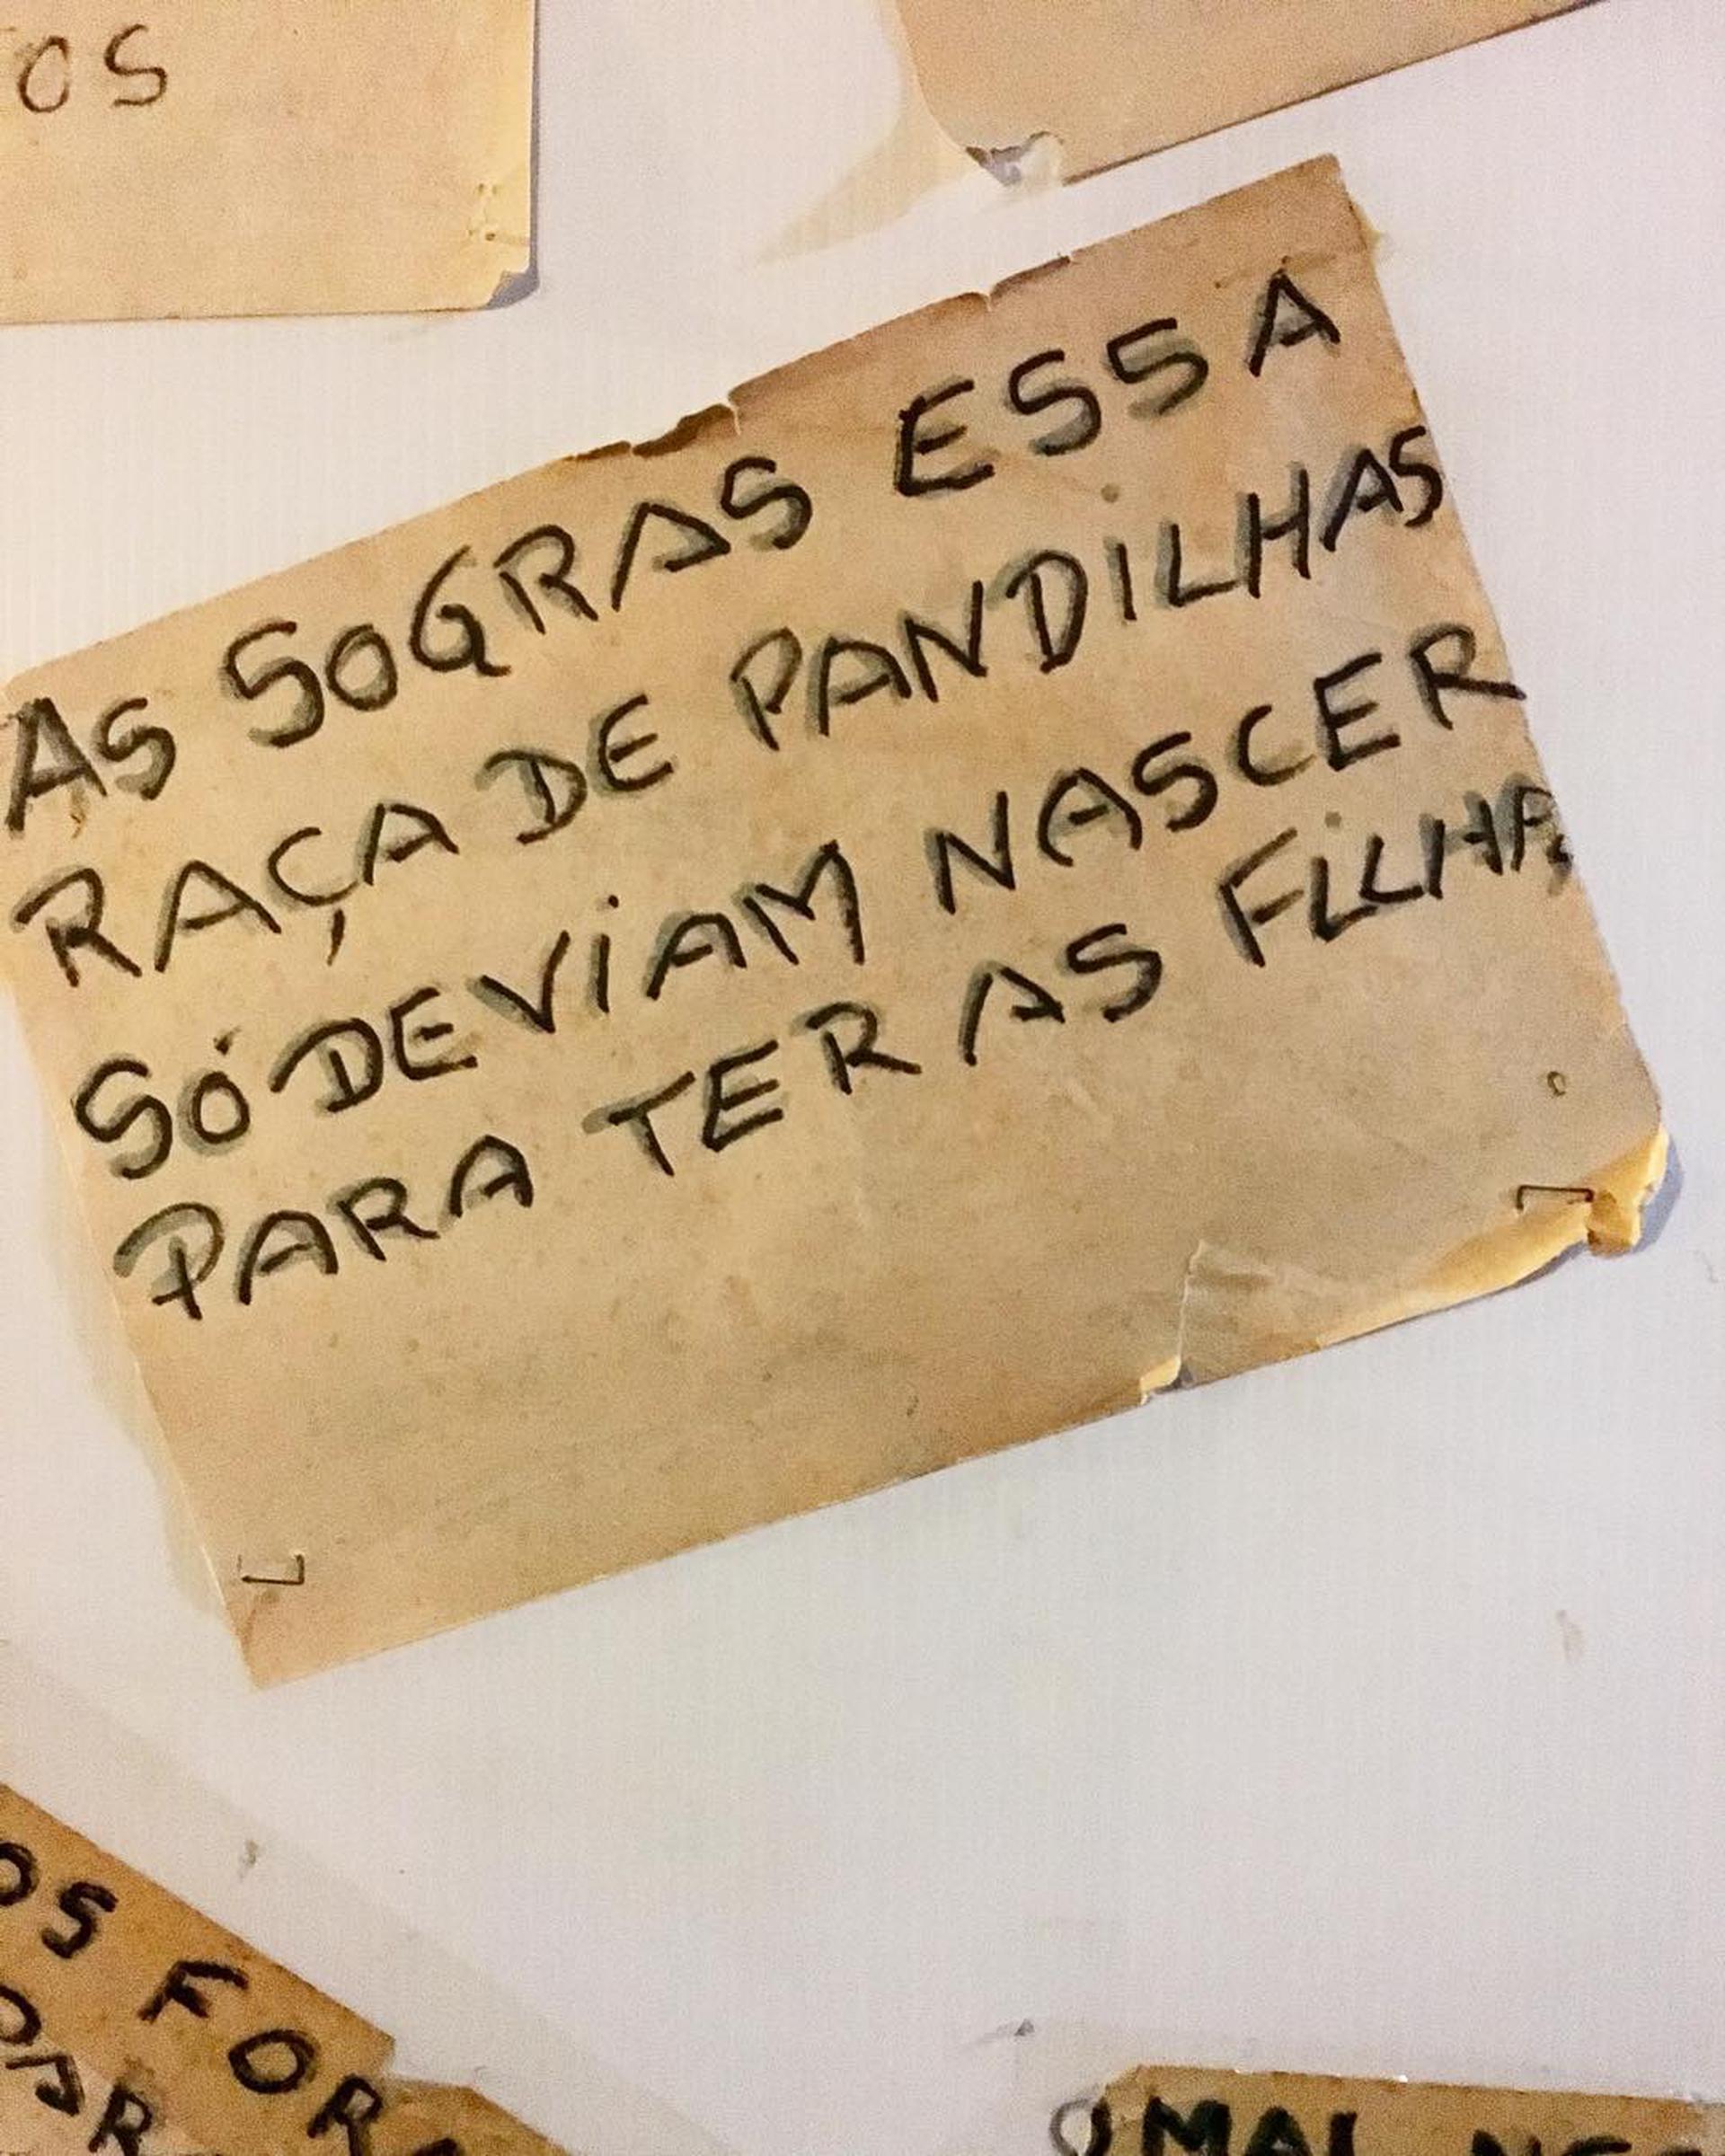 OS
AS SOGRAS ESSA
RAÇA DE PANDILHAS
SÓ DEVIAM NASCER
PARA TER AS FILHAS
OS FOR
OMAL